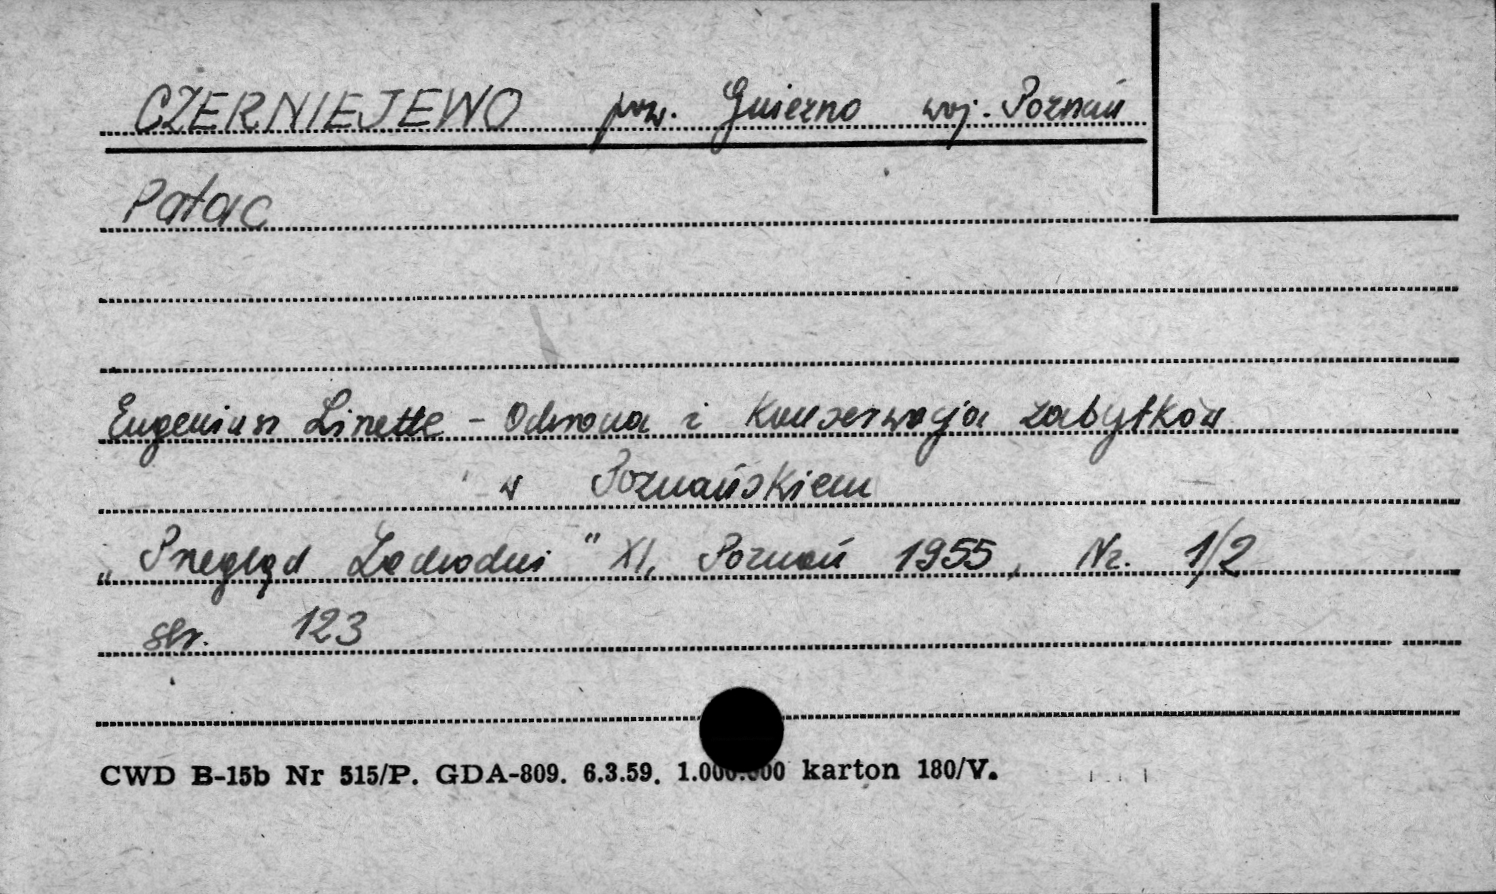 CZERNIEJEWO pow. Gniezno woj. Poznań
Pałac
Eugeniusz Linette - Ochrona i Konserwacja zabytków
w Poznańskiem
„Przegląd Zachodni" XI, Poznań 1955, Nr. 1/2
str. 123
CWD B-15b Nr 515/P. GDA-809. 6.3.59. 1.000.000 karton 180/V.